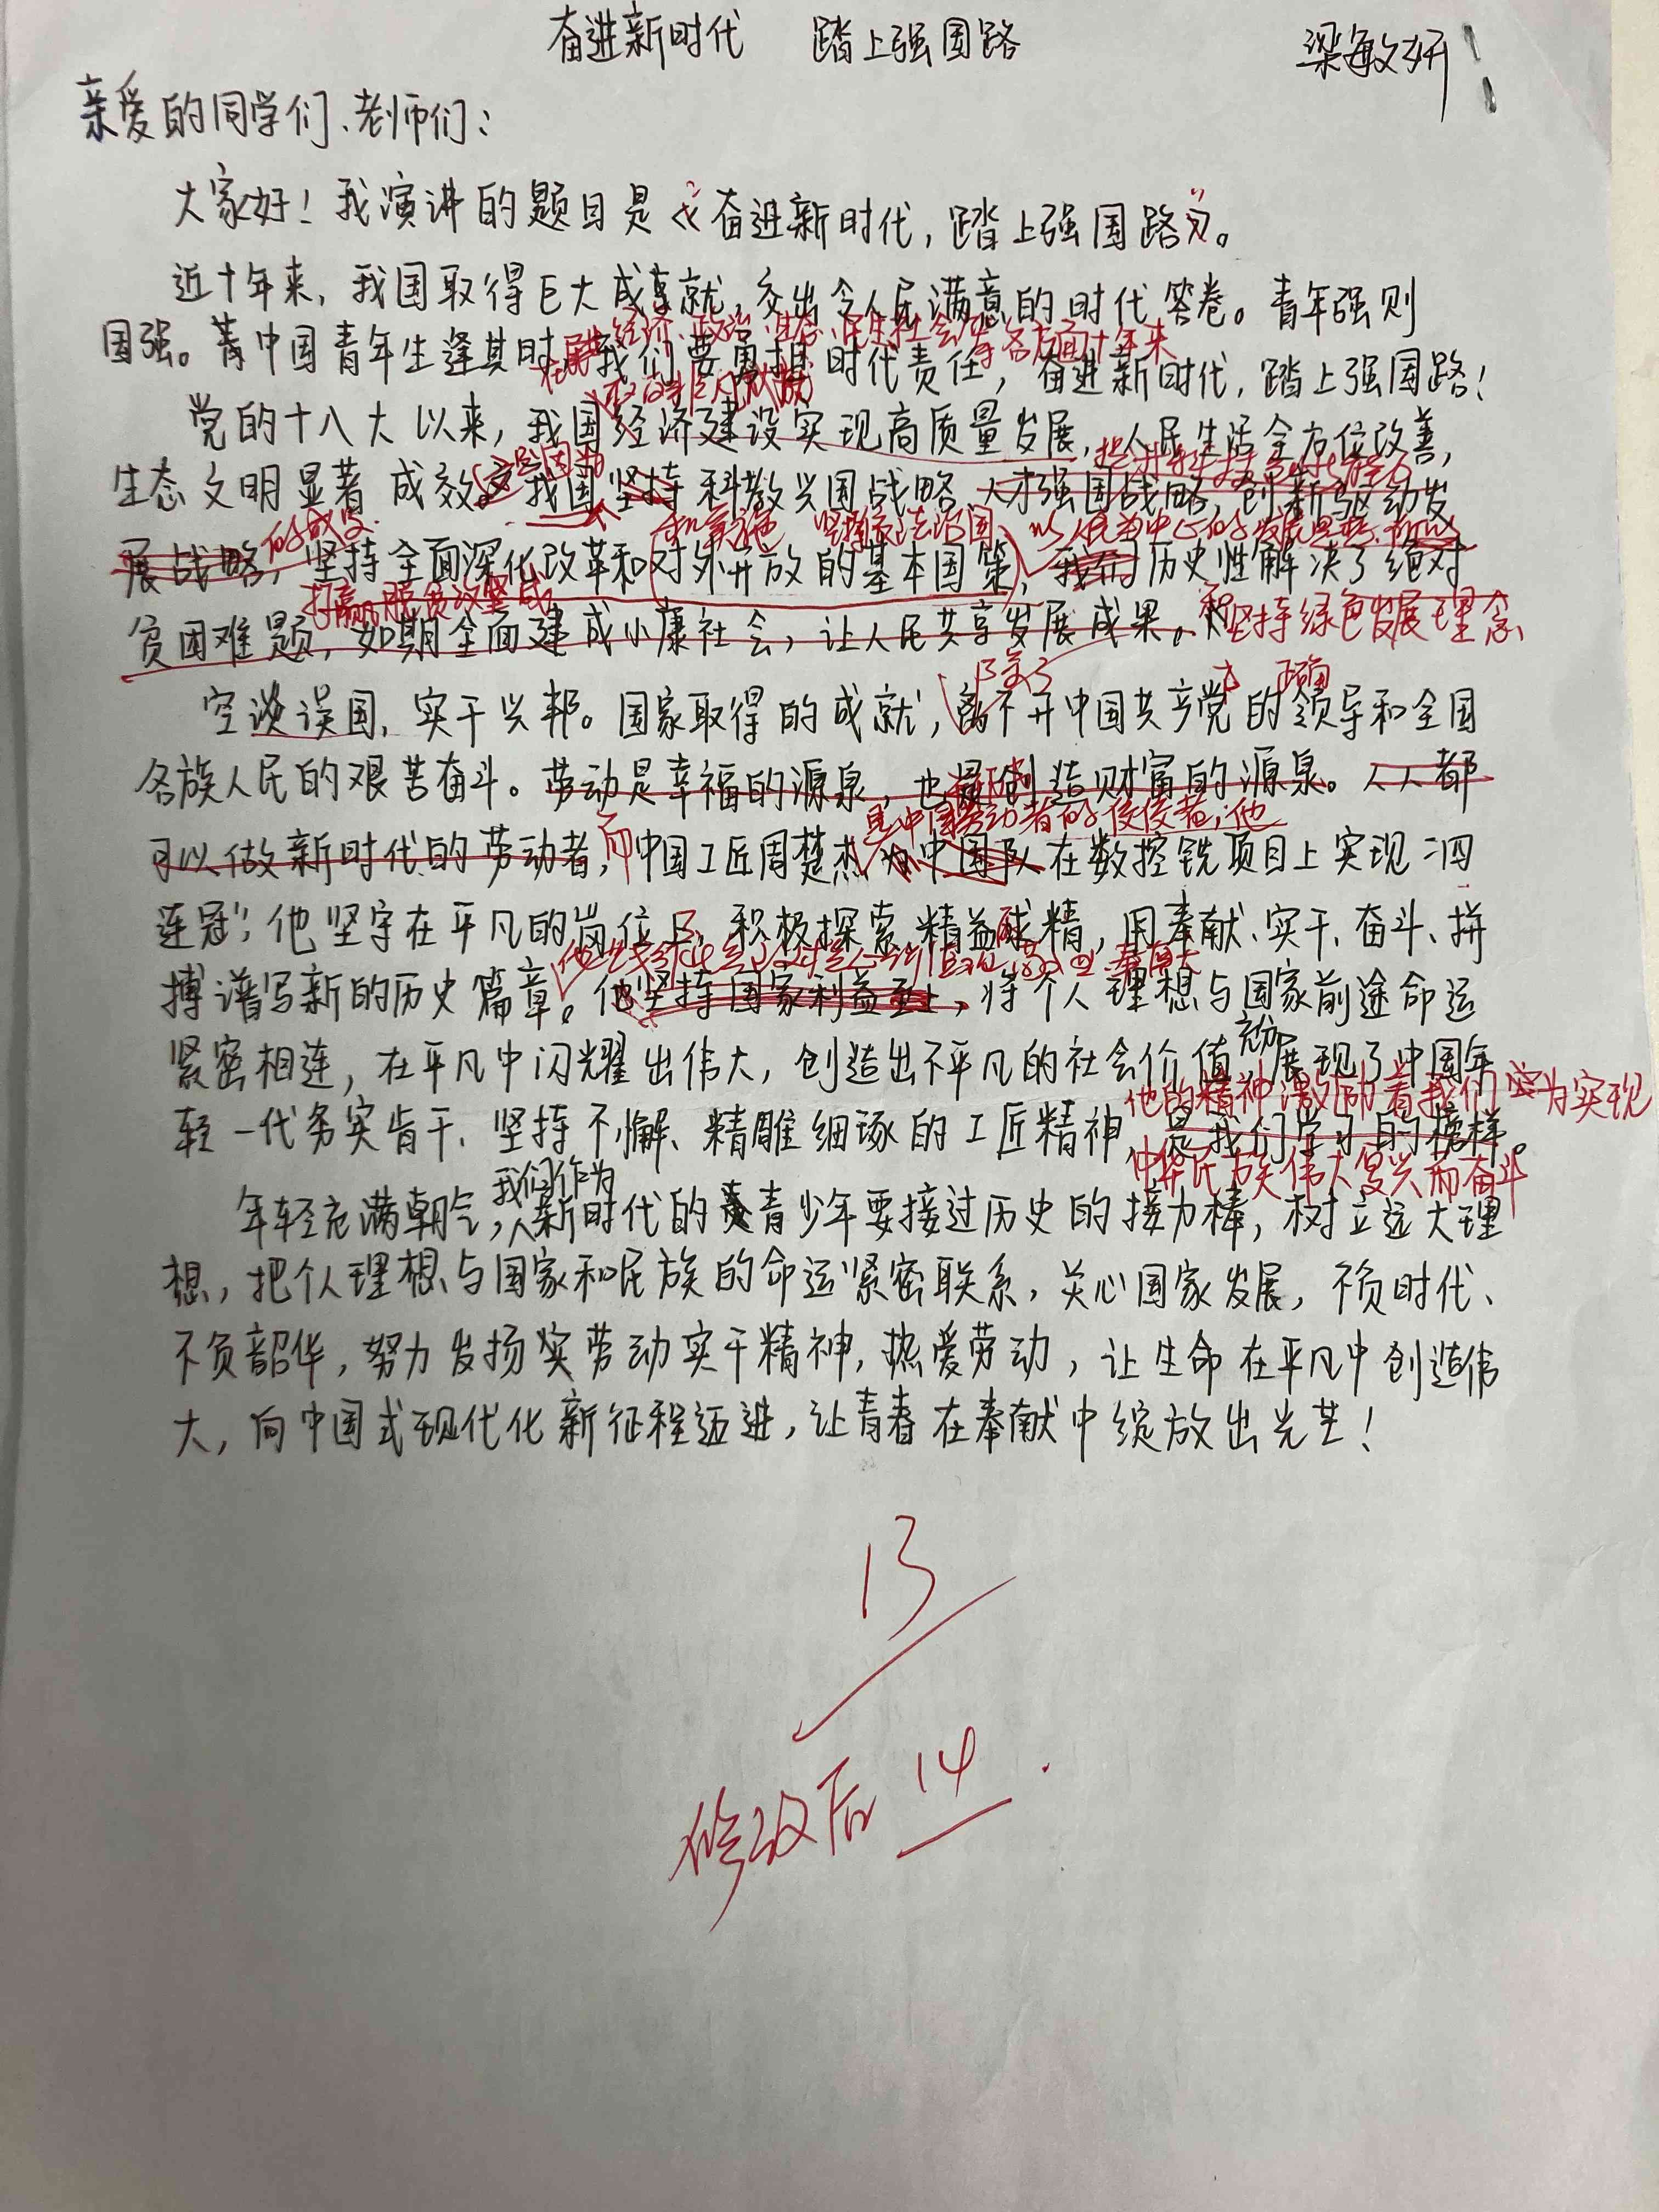 奋进新时代 踏上强国路
梁敏妍
亲爱的同学们、老师们：
大家好！我演讲的题目是《奋进新时代，踏上强国路》。
近十年来，我国取得巨大成就，交出令人民满意的时代答卷。青年强则
经济、政治、生态、民生社会等各方面十年来
国强。中国青年生逢其时，我们要勇担时代责任，奋进新时代，踏上强国路！
取得
党的十八大以来，我国经济建设实现高质量发展，人民生活全方位改善，
这是因为
生态文明显著成效。我国坚持科教兴国战略、人才强国战略，创新驱动发
和实施 以人民为中心的发展思想
展战略，坚持全面深化改革和对外开放的基本国策，我们历史性解决了绝对
打赢脱贫攻坚战
贫困难题，如期全面建成小康社会，让人民共享发展成果。和坚持绿色发展理念
正确
空谈误国，实干兴邦。国家取得的成就，离不开中国共产党的领导和全国
各族人民的艰苦奋斗。劳动是幸福的源泉，也是创造财富的源泉。人人都
是中国劳动者的佼佼者，他
可以做新时代的劳动者，而中国工匠周楚杰为中国队在数控铣项目上实现“四
连冠”，他坚守在平凡的岗位上，积极探索、精益求精，用奉献、实干、奋斗、拼
搏谱写新的历史篇章。他坚持国家利益至上，将个人理想与国家前途命运
紧密相连，在平凡中闪耀出伟大，创造出不平凡的社会价值，充分展现了中国年
他的精神激励着我们为实现
轻一代务实肯干、坚持不懈、精雕细琢的工匠精神，是我们学习的榜样。
中华民族伟大复兴而奋斗
我们作为
年轻充满朝气，新时代的青少年要接过历史的接力棒，树立远大理
想，把个人理想与国家和民族的命运紧密联系，关心国家发展，不负时代、
不负韶华，努力发扬劳动实干精神，热爱劳动，让生命在平凡中创造伟
大，向中国式现代化新征程迈进，让青春在奉献中绽放出光芒！
13
修改后 14